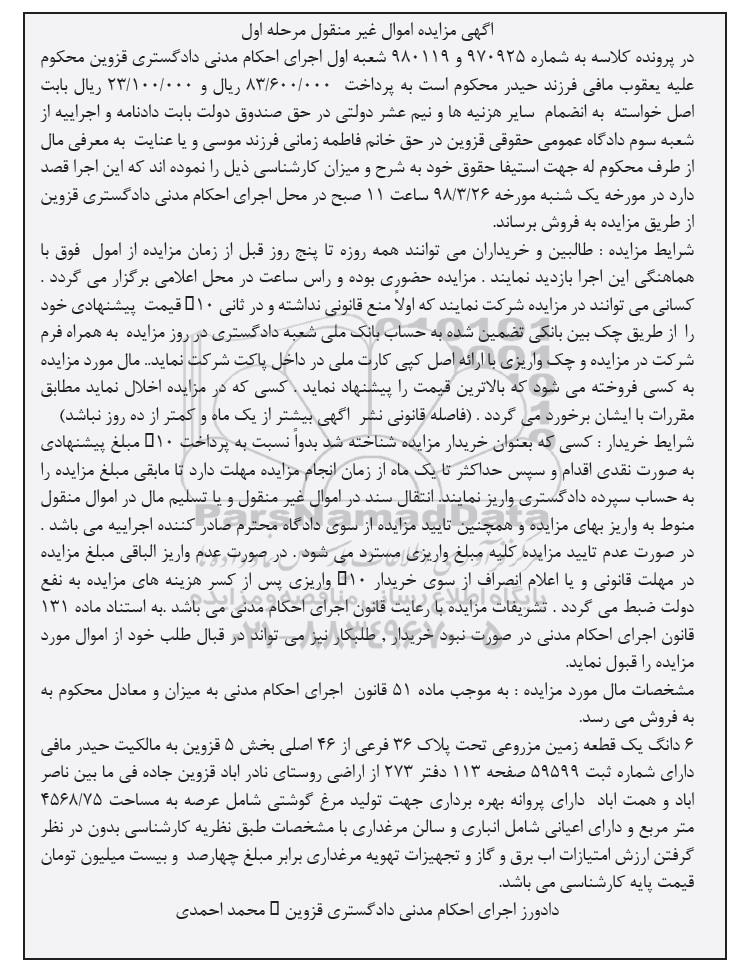 اگهی مزایده اموال غیر منقول مرحله اول
در پرونده کلاسه به شماره ۹۷۰۹۲۵ و ۹۸۰۱۱۹ شعبه اول اجرای احکام مدنی دادگستری قزوین محکوم
علیه یعقوب مافی فرزند حیدر محکوم است به پرداخت ۸۳/۶۰۰/۰۰۰ ریال و ۲۳/۱۰۰/۰۰۰ ریال بابت
اصل خواسته به انضمام سایر هزنیه ها و نیم عشر دولتی در حق صندوق دولت بابت دادنامه و اجراییه از
شعبه سوم دادگاه عمومی حقوقی قزوین در حق خانم فاطمه زمانی فرزند موسی و یا عنایت به معرفی مال
از طرف محکوم له جهت استیفا حقوق خود به شرح و میزان کارشناسی ذیل را نموده اند که این اجرا قصد
دارد در مورخه یک شنبه مورخه ۹۸/۳/۲۶ ساعت ۱۱ صبح در محل اجرای احکام مدنی دادگستری قزوین
از طریق مزایده به فروش برساند.
شرایط مزایده : طالبین و خریداران می توانند همه روزه تا پنج روز قبل از زمان مزایده از امول فوق با
هماهنگی این اجرا بازدید نمایند . مزایده حضوری بوده و راس ساعت در محل اعلامی برگزار می گردد .
کسانی می توانند در مزایده شرکت نمایند که اولاً منع قانونی نداشته و در ثانی ۱۰ قیمت پیشنهادی خود
را از طریق چک بین بانکی تضمین شده به حساب بانک ملی شعبه دادگستری در روز مزایده به همراه فرم
شرکت در مزایده و چک واریزی با ارائه اصل کپی کارت ملی در داخل پاکت شرکت نماید.. مال مورد مزایده
به کسی فروخته می شود که بالاترین قیمت را پیشنهاد نماید . کسی که در مزایده اخلال نماید مطابق
مقررات با ایشان برخورد می گردد . (فاصله قانونی نشر اگهی بیشتر از یک ماه و کمتر از ده روز نباشد)
شرایط خریدار : کسی که بعنوان خریدار مزایده شناخته شد بدواً نسبت به پرداخت ۱۰ مبلغ پیشنهادی
به صورت نقدی اقدام و سپس حداکثر تا یک ماه از زمان انجام مزایده مهلت دارد تا مابقی مبلغ مزایده را
به حساب سپرده دادگستری واریز نمایند. انتقال سند در اموال غیر منقول و یا تسلیم مال در اموال منقول
منوط به واریز بهای مزایده و همچنین تایید مزایده از سوی دادگاه محترم صادر کننده اجراییه می باشد .
در صورت عدم تایید مزایده کلیه مبلغ واریزی مسترد می شود . در صورت عدم واریز الباقی مبلغ مزایده
در مهلت قانونی و یا اعلام انصراف از سوی خریدار ۱۰ واریزی پس از کسر هزینه های مزایده به نفع
دولت ضبط می گردد . تشریفات مزایده با رعایت قانون اجرای احکام مدنی می باشد .به استناد ماده ۱۳۱
قانون اجرای احکام مدنی در صورت نبود خریدار , طلبکار نیز می تواند در قبال طلب خود از اموال مورد
مزایده را قبول نماید.
مشخصات مال مورد مزایده : به موجب ماده ۵۱ قانون اجرای احکام مدنی به میزان و معادل محکوم به
به فروش می رسد.
۶ دانگ یک قطعه زمین مزروعی تحت پلاک ۳۶ فرعی از ۴۶ اصلی بخش ۵ قزوین به مالکیت حیدر مافی
دارای شماره ثبت ۵۹۵۹۹ صفحه ۱۱۳ دفتر ۲۷۳ از اراضی روستای نادر اباد قزوین جاده فی ما بین ناصر
اباد و همت اباد دارای پروانه بهره برداری جهت تولید مرغ گوشتی شامل عرصه به مساحت ۴۵۶۸/۷۵
متر مربع و دارای اعیانی شامل انباری و سالن مرغداری با مشخصات طبق نظریه کارشناسی بدون در نظر
گرفتن ارزش امتیازات اب برق و گاز و تجهیزات تهویه مرغداری برابر مبلغ چهارصد و بیست میلیون تومان
قیمت پایه کارشناسی می باشد.
دادورز اجرای احکام مدنی دادگستری قزوین محمد احمدی
ParsNamadData
پایگاه اطلاع رسانی مناقصه و مزایده
۰۲۱-۸۸۳۴۹۶۷۰-۵